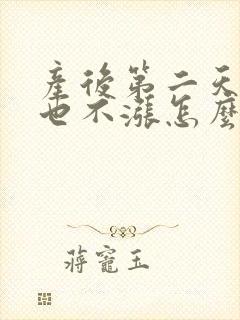 產後第二天
也不漲怎麼
蔣寵玉